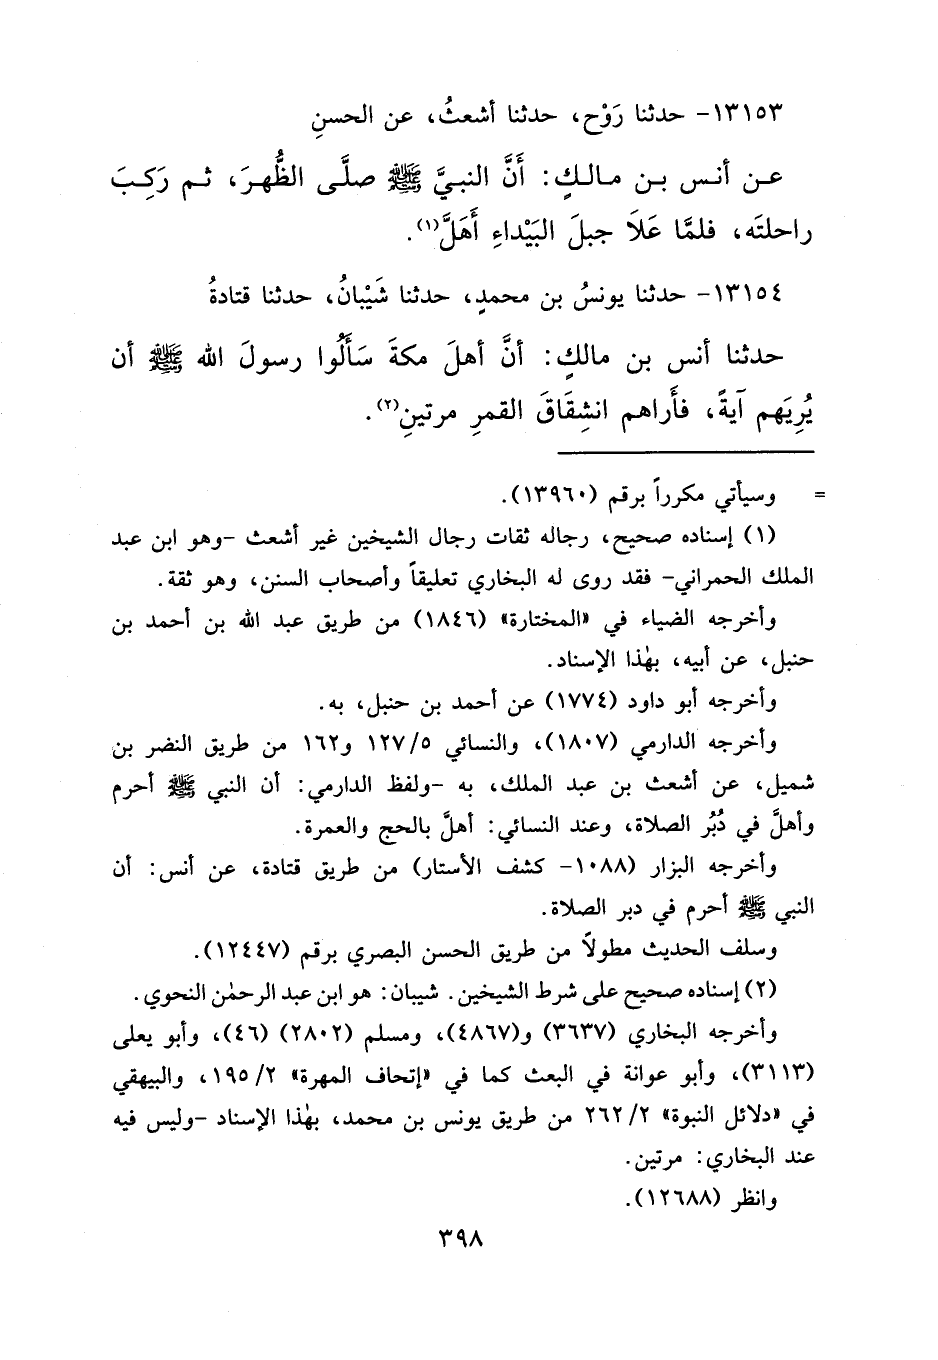 ١٣١٥٣- حدثنا رَوْح، حدثنا أشعثُ، عن الحسنِ
عـن أنـس بـن مـالـكٍ: أَنَّ النبـيَّ ﷺ صلَّـى الظُّهـرَ، ثـم رَكِـبَ
راحلتَه، فلمَّا عَلَا جبلَ البَيْداءِ أَهَلَّ(١).
١٣١٥٤- حدثنا يونسُ بن محمدٍ، حدثنا شَيْبانُ، حدثنا قتادةُ
حدثنا أنس بن مالكٍ: أنَّ أهلَ مكةَ سَأَلُوا رسولَ الله ﷺ أن
يُرِيَهم آيةً، فأَراهم انشِقَاقَ القمرِ مرتينِ(٢).
= وسيأتي مكرراً برقم (١٣٩٦٠).
(١) إسناده صحيح، رجاله ثقات رجال الشيخين غير أشعث -وهو ابن عبد
الملك الحمراني- فقد روى له البخاري تعليقاً وأصحاب السنن، وهو ثقة.
وأخرجه الضياء في «المختارة» (١٨٤٦) من طريق عبد الله بن أحمد بن
حنبل، عن أبيه، بهٰذا الإسناد.
وأخرجه أبو داود (١٧٧٤) عن أحمد بن حنبل، به.
وأخرجه الدارمي (١٨٠٧)، والنسائي ١٢٧/٥ و١٦٢ من طريق النضر بن
شميل، عن أشعث بن عبد الملك، به -ولفظ الدارمي: أن النبي ﷺ أحرم
وأهلَّ في دُبُر الصلاة، وعند النسائي: أهلَّ بالحج والعمرة.
وأخرجه البزار (١٠٨٨- كشف الأستار) من طريق قتادة، عن أنس: أن
النبي ﷺ أحرم في دبر الصلاة.
وسلف الحديث مطولاً من طريق الحسن البصري برقم (١٢٤٤٧).
(٢) إسناده صحيح على شرط الشيخين. شيبان: هو ابن عبد الرحمٰن النحوي.
وأخرجه البخاري (٣٦٣٧) و(٤٨٦٧)، ومسلم (٢٨٠٢) (٤٦)، وأبو يعلى
(٣١١٣)، وأبو عوانة في البعث كما في «إتحاف المهرة» ١٩٥/٢، والبيهقي
في «دلائل النبوة» ٢٦٢/٢ من طريق يونس بن محمد، بهٰذا الإسناد -وليس فيه
عند البخاري: مرتين.
وانظر (١٢٦٨٨).
٣٩٨